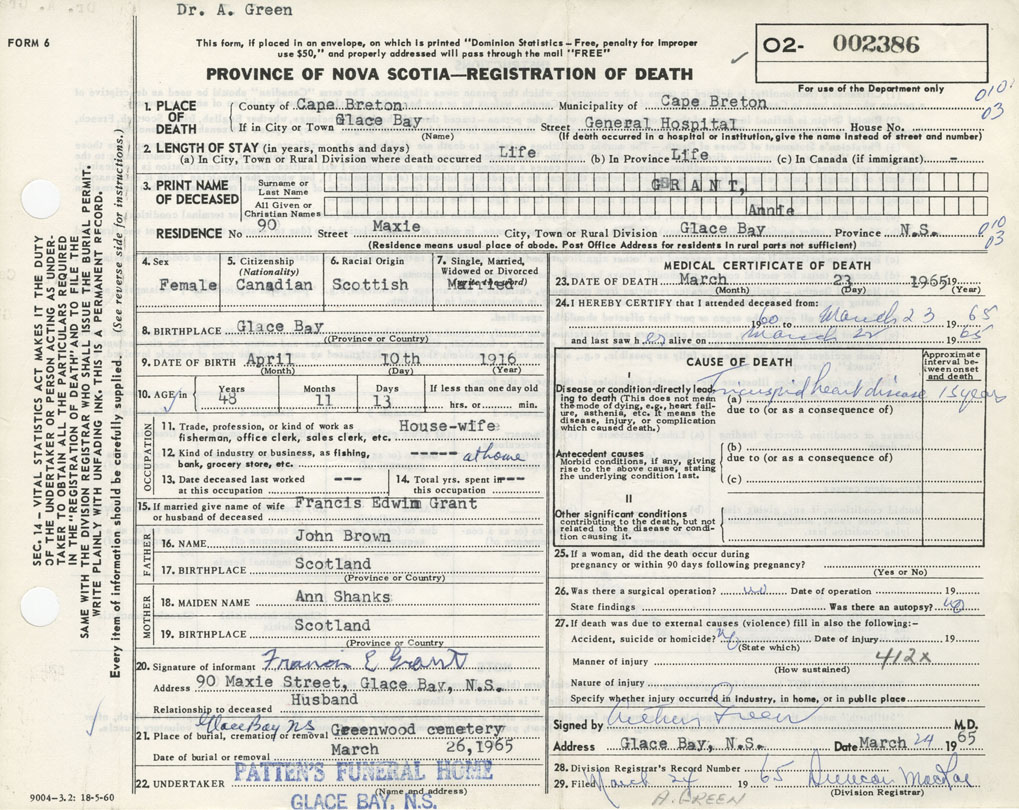 Dr. A. Green
FORM 6
This form, if placed in an envelope, on which is printed "Dominion Statistics – Free, penalty for improper
use $50," and properly addressed will pass through the mail "FREE"
PROVINCE OF NOVA SCOTIA—REGISTRATION OF DEATH
O2- 002386
For use of the Department only
010
03
SEC. 14 – VITAL STATISTICS ACT MAKES IT THE DUTY
OF THE UNDERTAKER OR PERSON ACTING AS UNDER-
TAKER TO OBTAIN ALL THE PARTICULARS REQUIRED
IN THE "REGISTRATION OF DEATH" AND TO FILE THE
SAME WITH THE DIVISION REGISTRAR WHO SHALL ISSUE THE BURIAL PERMIT.
WRITE PLAINLY WITH UNFADING INK. THIS IS A PERMANENT RECORD.
Every item of information should be carefully supplied. (See reverse side for instructions.)
1. PLACE OF DEATH
County of Cape Breton Municipality of Cape Breton
If in City or Town Glace Bay Street General Hospital House No.
(Name) (If death occurred in a hospital or institution, give the name instead of street and number)
2. LENGTH OF STAY (in years, months and days)
(a) In City, Town or Rural Division where death occurred Life (b) In Province Life (c) In Canada (if immigrant) -
3. PRINT NAME OF DECEASED
Surname or Last Name GRANT,
All Given or Christian Names Annie
RESIDENCE No 90 Street Maxie City, Town or Rural Division Glace Bay Province N.S.
010
03
(Residence means usual place of abode. Post Office Address for residents in rural parts not sufficient)
4. Sex
Female
5. Citizenship
(Nationality)
Canadian
6. Racial Origin
Scottish
7. Single, Married,
Widowed or Divorced
Married
8. BIRTHPLACE Glace Bay
((Province or Country)
9. DATE OF BIRTH April 10th 1916
(Month) (Day) (Year)
10. AGE in Years 48 Months 11 Days 13 If less than one day old
hrs. or min.
OCCUPATION
11. Trade, profession, or kind of work as
fisherman, office clerk, sales clerk, etc. House-wife
12. Kind of industry or business, as fishing,
bank, grocery store, etc. ----- at home
13. Date deceased last worked
at this occupation ---
14. Total yrs. spent in
this occupation ---
15. If married give name of wife
or husband of deceased Francis Edwin Grant
FATHER
16. NAME John Brown
17. BIRTHPLACE Scotland
(Province or Country)
MOTHER
18. MAIDEN NAME Ann Shanks
19. BIRTHPLACE Scotland
(Province or Country
20. Signature of informant Francis E Grant
Address 90 Maxie Street, Glace Bay, N.S.
Relationship to deceased Husband
Glace Bay NS
21. Place of burial, cremation or removal Greenwood cemetery
Date of burial or removal March 26,1965
22. UNDERTAKER PATTEN'S FUNERAL HOME
(Name and address)
GLACE BAY, N.S.
9004-3.2: 18-5-60
MEDICAL CERTIFICATE OF DEATH
23. DATE OF DEATH March 23 1965 19
(Month) (Day) (Year)
24. I HEREBY CERTIFY that I attended deceased from:
1960 to March 23 1965
and last saw her alive on March 22 1965
CAUSE OF DEATH
Approximate
interval be-
tween onset
and death
I
Disease or condition directly lead-
ing to death (This does not mean
the mode of dying, e.g., heart fail-
ure, asthenia, etc. It means the
disease, injury, or complication
which caused death.)
(a) Tricuspid heart disease 15 years
due to (or as a consequence of)
Antecedent causes
Morbid conditions, if any, giving
rise to the above cause, stating
the underlying condition last.
(b)
due to (or as a consequence of)
(c)
II
Other significant conditions
contributing to the death, but not
related to the disease or condi-
tion causing it.
25. If a woman, did the death occur during
pregnancy or within 90 days following pregnancy?
(Yes or No)
26. Was there a surgical operation? no Date of operation 19
State findings Was there an autopsy? no
27. If death was due to external causes (violence) fill in also the following:–
Accident, suicide or homicide? No Date of injury 19
(State which)
Manner of injury 412x
(How sustained)
Nature of injury
Specify whether injury occurred in industry, in home, or in public place
Signed by Arthur Green M.D.
Address Glace Bay, N.S. Date March 24 1965
28. Division Registrar's Record Number
29. Filed March 24 1965 Duncan MacRae
(Division Registrar)
A. GREEN